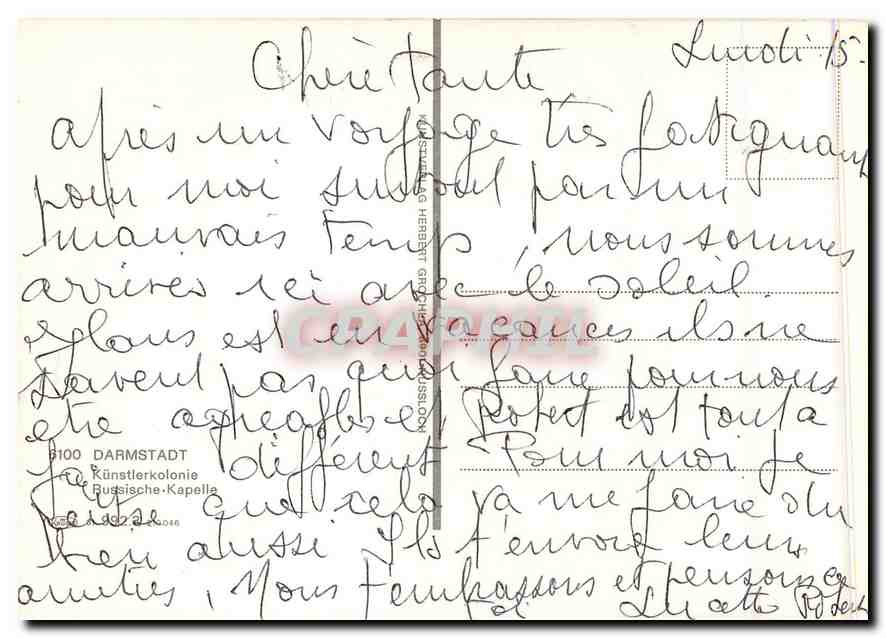 Lundi 15.
Chère Tante
après un voyage très fatiguant
pour moi surtout par un
mauvais temps, nous sommes
arrivés ici avec le soleil.
Klaus est en vacances ils ne
savent pas quoi faire pour nous
être agréables et Robert est tout à
fait différent Pour moi je
pense que cela va me faire du
bien aussi. Ils t'envoie leurs
amitiés, Nous t'embrassons et pensons
à toi Robert
6100 DARMSTADT
Künstlerkolonie
Russische-Kapelle
KUNSTVERLAG HERBERT
CPAPHIL